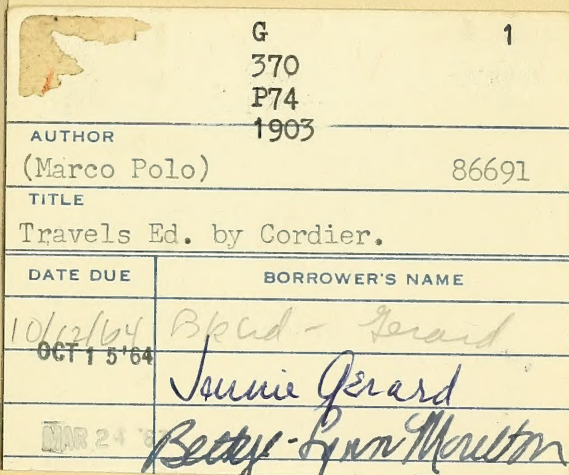 G 1
370
P74
1903
AUTHOR
(Marco Polo) 86691
TITLE
Travels Ed. by Cordier.
DATE DUE BORROWER'S NAME
10/12/64 Gerard
OCT 15 '64
Jennie Gerard
MAR 24 Betty-Lynn Moulton